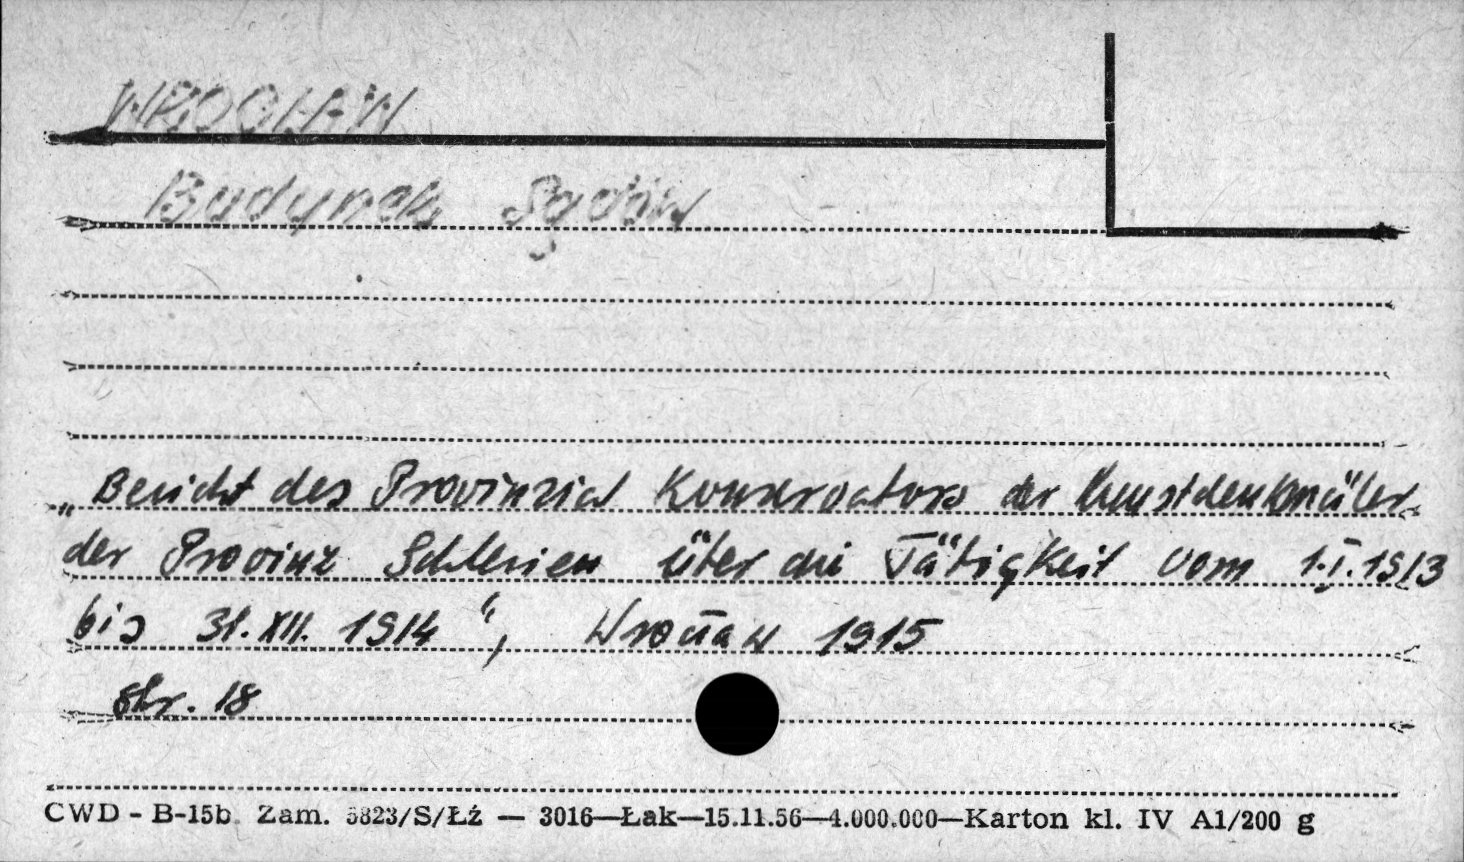 WROCŁAW
Budynek Sądów
„Bericht des Provinzial Konservators der Kunstdenkmäler
der Provinz Schlesien über die Tätigkeit vom 1.I.1913
bis 31.XII. 1914", Wrocław 1915
str. 18
CWD - B-15b. Zam. 5823/S/Łź — 3016—Łak—15.11.56—4.000.000—Karton kl. IV A1/200 g